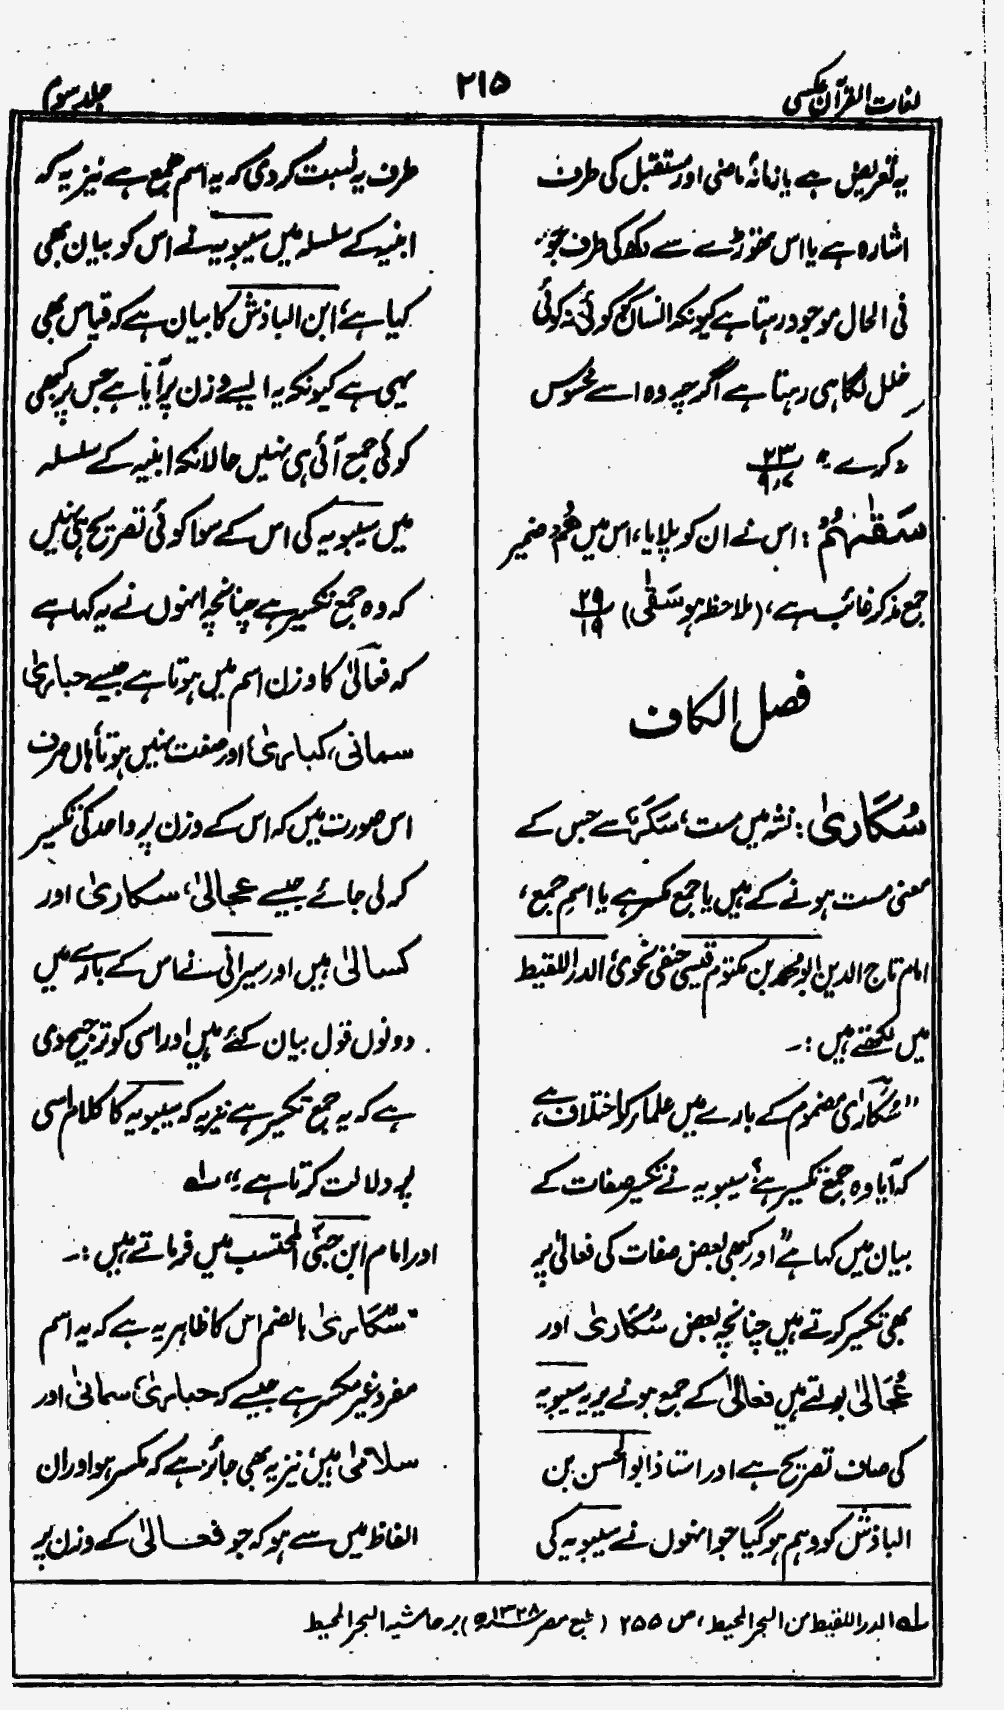 لغات القرآن عکسی
۲۱۵
جلد سوم
یہ تعریض ہے یا زمانۂ ماضی اور مستقبل کی طرف
اشارہ ہے یا اس تھوڑے سے دکھ کی طرف جو
فی الحال موجود رہتا ہے کیونکہ انسان کو کوئی نہ کوئی
خلل لگا ہی رہتا ہے اگرچہ وہ اسے محسوس
نہ کرے ۔" ۲۳
سَقٰىهُمْ : اس نے ان کو پلایا، اس میں ھُمْ ضمیر
جمع مذکر غائب ہے، (ملاحظہ ہو سَقٰی) ۲۹ ۱۹
فصل الکاف
سُکَارٰی : نشہ میں مست، سَکَرٌ سے جس کے
معنی مست ہونے کے ہیں یا جمع مکسر ہے یا اسم جمع،
امام تاج الدین ابو محمد بن مکتوم قیسی حنفی نحوی الدر اللقیط
میں لکھتے ہیں :۔
"سُکَارٰی مضموم کے بارے میں علماء کو اختلاف ہے،
کہ آیا وہ جمع تکسیر ہے، سیبویہ نے تکسیر صفات کے
بیان میں کہا ہے "اور کبھی بعض صفات کی فعالٰی پر
بھی تکسیر کرتے ہیں چنانچہ بعض سُکَارٰی اور
عُجَالٰی بولتے ہیں فعالٰی کے جمع ہونے پر یہ سیبویہ
کی صاف تصریح ہے اور استاذ ابو الحسن بن
الباذش کو وہم ہو گیا جو انہوں نے سیبویہ کی
طرف یہ نسبت کر دی کہ یہ اسم جمع ہے نیز یہ کہ
ابنیہ کے سلسلہ میں سیبویہ نے اس کو بیان بھی
کیا ہے، ابن الباذش کا بیان ہے کہ قیاس بھی
یہی ہے کیونکہ یہ ایسے وزن پر آیا ہے جس پر کبھی
کوئی جمع آئی ہی نہیں حالانکہ ابنیہ کے سلسلہ
میں سیبویہ کی اس کے سوا کوئی تصریح ہی نہیں
کہ وہ جمع تکسیر ہے چنانچہ انہوں نے یہ کہا ہے
کہ فعالٰی کا وزن اسم میں ہوتا ہے جیسے حباری
سمانی، کباری، اور صفت نہیں ہوتا ہاں صرف
اس صورت میں کہ اس کے وزن پر واحد کی تکسیر
کر لی جائے جیسے عجالیٰ، سکاریٰ اور
کسالیٰ ہیں اور سیرافی نے اس کے بارے میں
دونوں قول بیان کئے ہیں اور اسی کو ترجیح دی
ہے کہ یہ جمع تکسیر ہے نیز یہ کہ سیبویہ کا کلام اسی
پر دلالت کرتا ہے ۔" لہ
اور امام ابن جنیؒ المحتسب میں فرماتے ہیں :۔
"سُکَارٰی بالضم اس کا ظاہر یہ ہے کہ یہ اسم
مفرد غیر مکسر ہے جیسے کہ حباریٰ، سمانیٰ اور
سلامیٰ ہیں، نیز یہ بھی جائز ہے کہ مکسر ہو اور ان
الفاظ میں سے ہو کہ جو فعالیٰ کے وزن پر
لہ الدر اللقیط من البحر المحیط، ص ۲۵۵ (طبع مصر ۱۳۲۸ھ) بر حاشیہ البحر المحیط